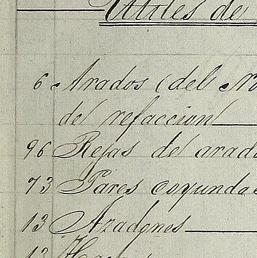 Utiles de
6 Arados (del No
de refaccion
96 Rejas de arado
73 Pares coyundas
13 Azadones